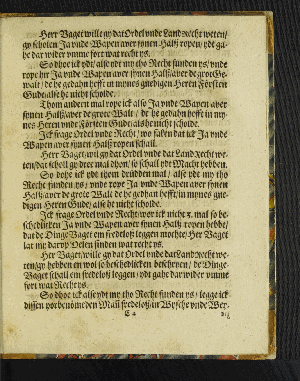 Herr Vaget wille gy dat Ordel vnde Landrecht weten/
gy scholen Ja vnde Wapen aver synen Halß ropen/ ydt ga-
he dar wider vmme fort wat recht ys.
So dhoe ick ydt/ alse ydt my tho Recht funden ys/ vnde
rope hir Ja vnde Wapen aver synen Halß/ aver de grote Ge-
walt/ de he gedahn hefft in mynes gnedigen Heren Försten
Gude/ alse he nicht scholde.
Thom andern mal rope ick alse Ja vnde Wapen aver
synen Halß/ aver de grote Walt/ de he gedahn hefft in my-
nes Heren vnde Försten Gude/ als he nicht scholde.
Ick frage Ordel vnde Recht/ wo faken dat ick Ja vnde
Wapen aver synen Halß ropen schall.
Herr Vaget/ wil gy dat Ordel vnde dat Landrecht we-
ten/ dat scholl gy dree mal dhon/ so schall ydt Macht hebben.
So dohe ick ydt thom drüdden mal/ alse ydt my tho
Recht funden ys/ vnde rope Ja vnde Wapen aver synen
Halß/ aver de grote Walt de he gedhan hefft/ in mynes gne-
digen Heren Gude/ alse he nicht scholde.
Ick frage Ordel vnde Recht/ wor ick nicht mal so be-
schedtlicken Ja vnde Wapen aver synen Halß ropen hebbe/
dat de Dinge Vaget em fredeloß leggen mochte/ Her Vaget
lat my darvp Delen finden wat recht ys.
Her Vaget/ wille gy dat Ordel vnde dat Landrecht we-
ten/ gy hebben en wol so beschedlicken beschryen/ de Dinge-
Vaget schall em fredeloß leggen/ ydt gahe dar wider vmme
fort wat Recht ys.
So dhoe ick alse ydt my tho Recht funden ys/ legge ick
dissen vorbenömeden Man fredeloß/ in Wysche vnde Wey-